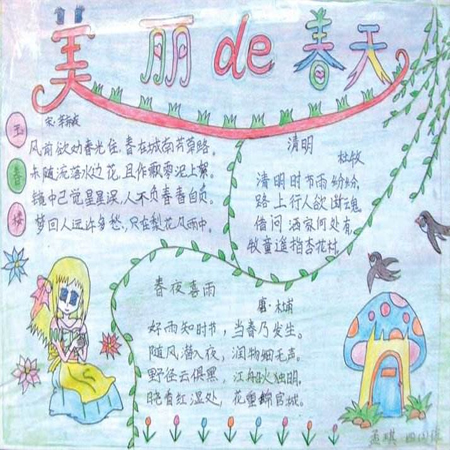 美丽de春天
玉
春
楼
宋·辛弃疾
风前欲劝春光住,春在城南芳草路。
未随流落水之花,且作飘零泥上絮。
镜中已觉星星误,人不负春春自负。
梦回人远许多愁,只在梨花风雨中。
清明
杜牧
清明时节雨纷纷,
路上行人欲断魂。
借问酒家何处有,
牧童遥指杏花村。
春夜喜雨
唐·杜甫
好雨知时节,当春乃发生。
随风潜入夜,润物细无声。
野径云俱黑,江船火独明。
晓看红湿处,花重锦官城。